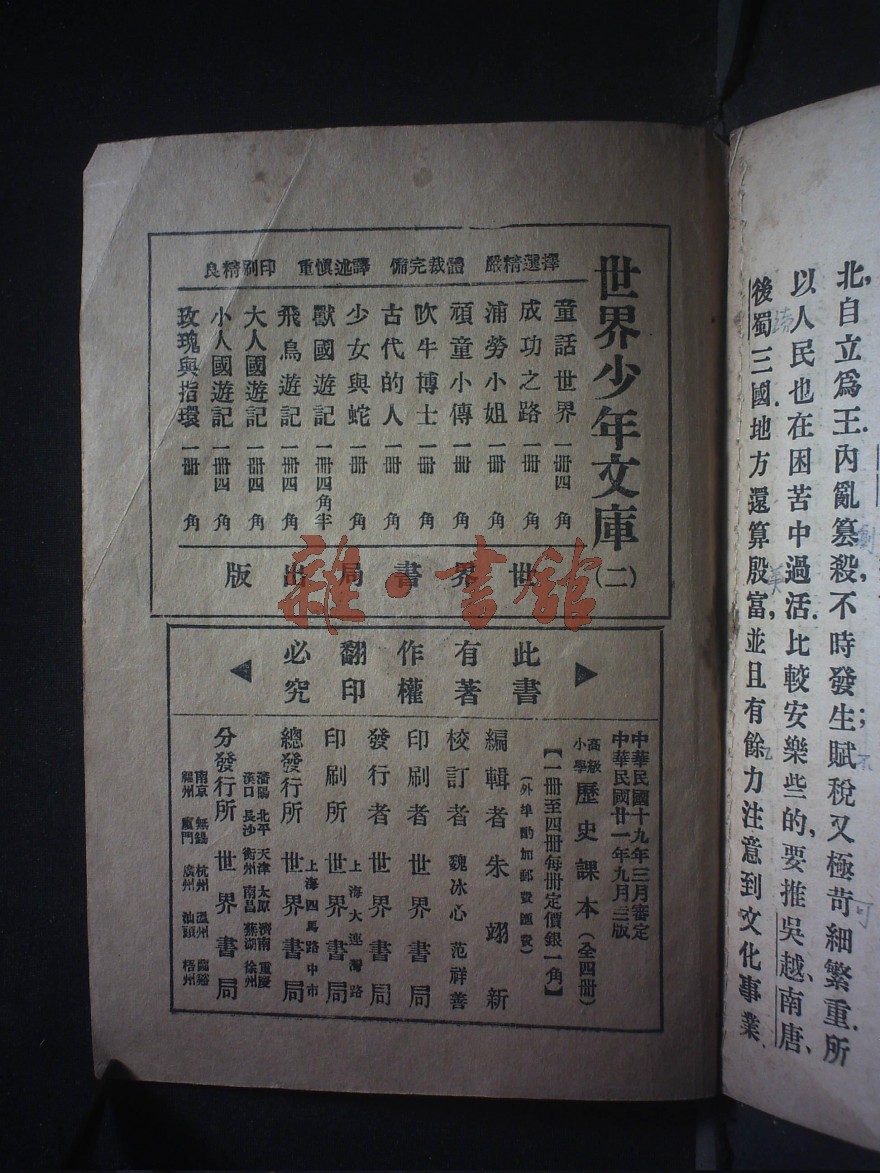 北自立爲王.內亂篡殺,不時發生;賦稅又極苛細繁重.所
以人民也在困苦中過活.比較安樂些的,要推吳越、南唐、
後蜀三國地方還算殷富,並且有餘力注意到文化事業.
世界少年文庫(二)
擇選精嚴 體裁完備 譯述愼重 印刷精良
童話世界 一冊四角
成功之路 一冊 角
浦勞小姐 一冊 角
頑童小傳 一冊 角
吹牛博士 一冊 角
古代的人 一冊 角
少女與蛇 一冊 角
獸國遊記 一冊四角半
飛鳥遊記 一冊四角
大人國遊記 一冊四角
小人國遊記 一冊四角
玫瑰與指環 一冊 角
世界書局出版
雜·書館
此書
有著
作權
翻印
必究
中華民國十九年三月審定
中華民國廿一年九月三版
高級小學 歷史課本(全四冊)
【一冊至四冊每冊定價銀一角】
(外埠酌加郵費匯費)
編輯者 朱翊新
校訂者 魏冰心 范祥善
印刷者 世界書局
發行者 世界書局
印刷所 上海大連灣路 世界書局
總發行所 上海四馬路中市 世界書局
分發行所 世界書局
瀋陽 北平 天津 太原 濟南 重慶
漢口 長沙 衡州 南昌 蕪湖 徐州
南京 無錫 杭州 溫州 蘭谿
福州 廈門 廣州 汕頭 梧州